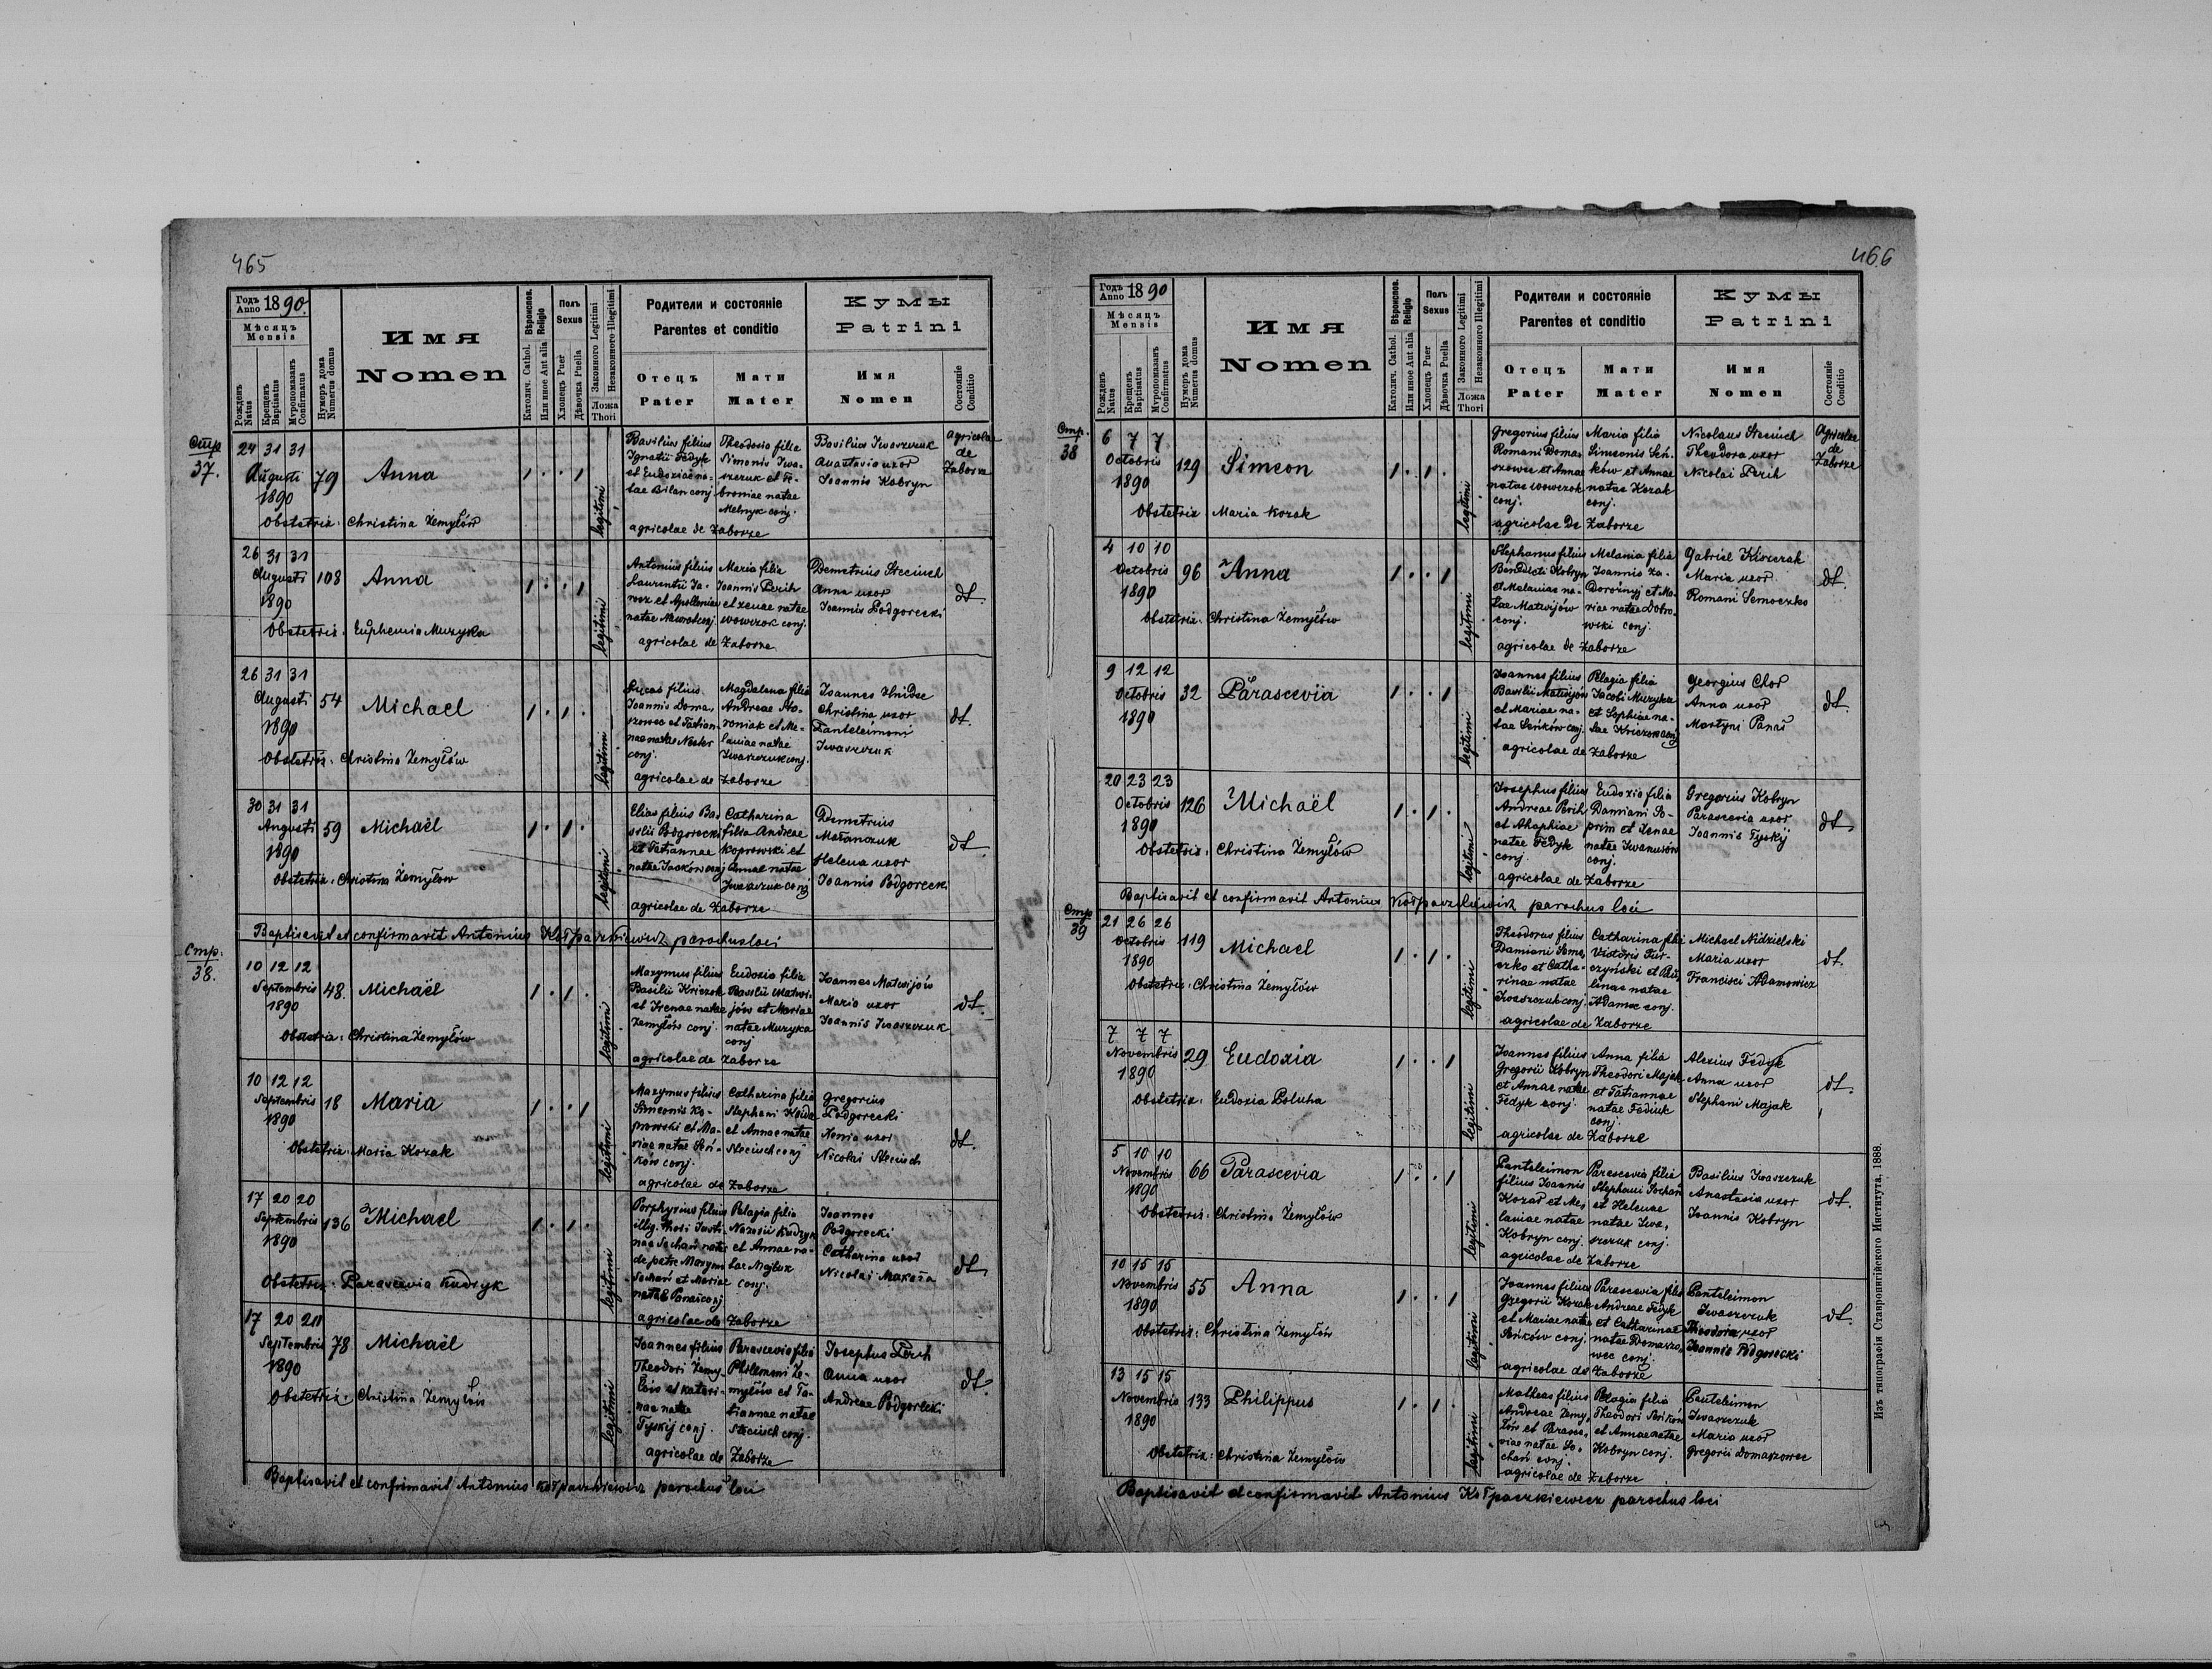 465
Годъ Anno 1890.
Мѣсяцъ Mensis
Рожденъ Natus
Крещенъ Baptisatus
Мѵропомазанъ Confirmatus
Нумеръ дома Numerus domus
Имя
Nomen
Вѣроиспов. Religio
Католич. Cathol.
Или иное Aut alia
Полъ Sexus
Хлопецъ Puer
Дѣвочка Puella
Законного Legitimi
Незаконного Illegitimi
Ложа Thori
Родители и состояніе
Parentes et conditio
Отецъ
Pater
Мати
Mater
Кумы
Patrini
Имя
Nomen
Состояніе Conditio
Стр 37.
24 31 31
Augusti
1890
79
Anna
1 . . 1
legitimi
Basilius filius
Ignatii Fedyk
et Eudoxiae na-
tae Bilan conj
Theodosia filia
Simonis Iwa-
szczuk et
broniae natae
Melnyk conj.
agricolae de Zaborze
Basilius Iwaszczuk
Anastasia uxor
Ioannis Kobryn
agricolae
de
Zaborze
Obstetrix: Christina Zemylów
26 31 31
Augusti
1890
108
Anna
1 . . 1
legitimi
Antonius filius
Laurentii
et Apolloniae
natae conj
Maria filia
Ioannis Perih
et Xenae natae
Wowczok conj.
agricolae de Zaborze
Demetrius Steciuch
Anna uxor
Ioannis Podgorecki
dt.
Obstetrix: Euphemia Muzyka
26 31 31
Augusti
1890
54
Michael
1 . 1 .
legitimi
Lucas filius
Ioannis Doma-
szowec et Tatian-
nae natae Nester
conj.
Magdalena filia
Andreae
roniak et Me-
laniae natae
Iwaszczuk conj.
agricolae de Zaborze
Ioannes Hnidec
Christina uxor
Panteleimoni
Iwaszczuk
dt.
Obstetrix: Christina Zemylów
30 31 31
Augusti
1890
59
Michaël
1 . 1 .
legitimi
Elias filius Ba-
silii Podgorecki
et Tatiannae
natae Jacków conj
Catharina
filia Andreae
Koprowski et
Annae natae
Iwaszczuk conj
agricolae de Zaborze
Demetrius
Matanczuk
Helena uxor
Ioannis Podgorecki
dt.
Obstetrix: Christina Zemylow
Baptisavit et confirmavit Antonius Kołpaczkiewicz parochus loci
Стр. 38.
10 12 12
Septembris
1890
48.
Michaël
1 . 1 .
legitimi
Maxymus filius
Basilii Kriczok
et Irenae natae
Zemyłów conj.
Eudoxia filia
Basilii Matwi-
jów et Mariae
natae Muzyka
conj
agricolae de Zaborze
Ioannes Matwijów
Maria uxor
Ioannis Iwaszczuk
dt.
Obstetrix: Christina Zemylów
10 12 12
Septembris
1890
18
Maria
1 . . 1
legitimi
Maxymus filius
Simeonis Ko-
prowski et Ma-
riae natae Sen-
ków conj.
Catharina filia
Stephani
et Annae natae
Steciuch conj
agricolae de Zaborze
Gregorius
Podgorecki
Xenia uxor
Nicolai Steciuch
dt.
Obstetrix: Maria Kozak
17 20 20
Septembris
1890
136
Michael
1 . 1 .
legitimi
Porphyrius filius
illeg. thori Justi-
nae Sochań natae
de patre Maxymi
Sochań et Mariae
natae Panas conj
Pelagia filia
Nazarii Kudryk
et Annae na-
tae Majtek
conj.
agricolae de Zaborze
Ioannes
Podgorecki
Catharina uxor
Nicolai Makara
dt.
Obstetrix: Parascevia Kudryk
17 20 20
Septembris
1890
78
Michaël
legitimi
Ioannes filius
Theodori Zemy-
lów et Katari-
nae natae
Tyskij conj.
Parascevia filia
Philemoni Ze-
mylów et Ta-
tiannae natae
Steciuch conj.
agricolae de Zaborze
Iosephus Perih
Anna uxor
Andreae Podgorecki
dt.
Obstetrix: Christina Zemylów
Baptisavit et confirmavit Antonius Kołpaczkiewicz parochus loci
466
Годъ Anno 1890
Мѣсяцъ Mensis
Рожденъ Natus
Крещенъ Baptisatus
Мѵропомазанъ Confirmatus
Нумеръ дома Numerus domus
Имя
Nomen
Вѣроиспов. Religio
Католич. Cathol.
Или иное Aut alia
Полъ Sexus
Хлопецъ Puer
Дѣвочка Puella
Законного Legitimi
Незаконного Illegitimi
Ложа Thori
Родители и состояніе
Parentes et conditio
Отецъ
Pater
Мати
Mater
Кумы
Patrini
Имя
Nomen
Состояніе Conditio
Стр. 38
6 7 7
Octobris
1890
129
Simeon
1 . 1 .
legitimi
Gregorius filius
Romani Doma-
szowec et Annae
natae Wowczok
conj.
Maria filia
Simeonis Sen-
ków et Annae
natae Kozak
conj.
agricolae de Zaborze
Nicolaus Steciuch
Theodora uxor
Nicolai Perih
Agricolae
de
Zaborze
Obstetrix Maria Kozak
4 10 10
Octobris
1890
96
Anna
1 . . 1
legitimi
Stephanus filius
Benedicti Kobryn
et Melaniae na-
tae Matwijów
conj.
Melania filia
Ioannis Za-
Dorożnyj et Ma-
riae natae Dobro-
wski conj.
agricolae de Zaborze
Gabriel Kiszczak
Maria uxor
Romani Semoczko
dt.
Obstetrix: Christina Zemylów
9 12 12
Octobris
1890
32
Parascevia
1 . . 1
legitimi
Ioannes filius
Basilii Matwijów
et Mariae na-
tae Senków conj.
Pelagia filia
Jacobi Muzyka
et Sophiae na-
tae Kriczok conj
agricolae de Zaborze
Georgius Chor
Anna uxor
Martyni Panas
dt.
20 23 23
Octobris
1890
126
Michaël
1 . 1 .
legitimi
Iosephus filius
Andreae Perih
et Ahaphiae
natae Fedyk
conj.
Eudoxia filia
Damiani So-
prim et Xenae
natae Iwanusów
conj.
agricolae de Zaborze
Gregorius Kobryn
Parascevia uxor
Ioannis Tyskij
dt.
Obstetrix: Christina Zemylów
Baptisavit et confirmavit Antonius Kołpaczkiewicz parochus loci
Стр 39
21 26 26
Octobris
1890
119
Michael
1 . 1 .
legitimi
Theodorus filius
Damiani Semo-
czko et Catha-
rinae natae
Iwaszczuk conj.
Catharina filia
Victoris Tur-
czyński et Pau-
linae natae
Adamec conj.
agricolae de Zaborze
Michael Nidzielski
Maria uxor
Francisci Adamowicz
dt.
Obstetrix: Christina Zemylów
7 7 7
Novembris
1890
29
Eudoxia
1 . . 1
legitimi
Ioannes filius
Gregorii Kobryn
et Annae natae
Fedyk conj.
Anna filia
Theodori Majak
et Tatiannae
natae Fediuk
conj.
agricolae de Zaborze
Alexius Fedyk
Anna uxor
Stephani Majak
dt.
Obstetrix: Eudoxia Poluha
5 10 10
Novembris
1890
66
Parascevia
1 . . 1
legitimi
Panteleimon
filius Ioannis
Kozar et Me-
laniae natae
Kobryn conj.
Parascevia filia
Stephani Sochań
et Helenae
natae Iwa-
szczuk conj.
agricolae de Zaborze
Basilius Iwaszczuk
Anastasia uxor
Ioannis Kobryn
dt.
Obstetrix: Christina Zemylów
10 15 15
Novembris
1890
55
Anna
1 . . 1
legitimi
Ioannes filius
Gregorii Kozak
et Mariae natae
Senków conj
Parascevia filia
Andreae Fedyk
et Catharinae
natae Domaszo-
wec conj.
agricolae de Zaborze
Panteleimon
Iwaszczuk
Theodora uxor
Ioannis Podgorecki
dt.
Obstetrix: Christina Zemylów
13 15 15
Novembris
1890
133
Philippus
1 . 1 .
legitimi
Matheas filius
Andreae Zemy-
lów et Parasce-
viae natae So-
chań conj.
Pelagia filia
Theodori Senków
et Annae natae
Kobryn conj.
agricolae de Zaborze
Panteleimon
Iwaszczuk
Maria uxor
Gregorii Domaszowec
Obstetrix: Christina Zemylów
Baptisavit et confirmavit Antonius Kołpaczkiewicz parochus loci
Изъ типографіи Ставропигійского Института, 1888.